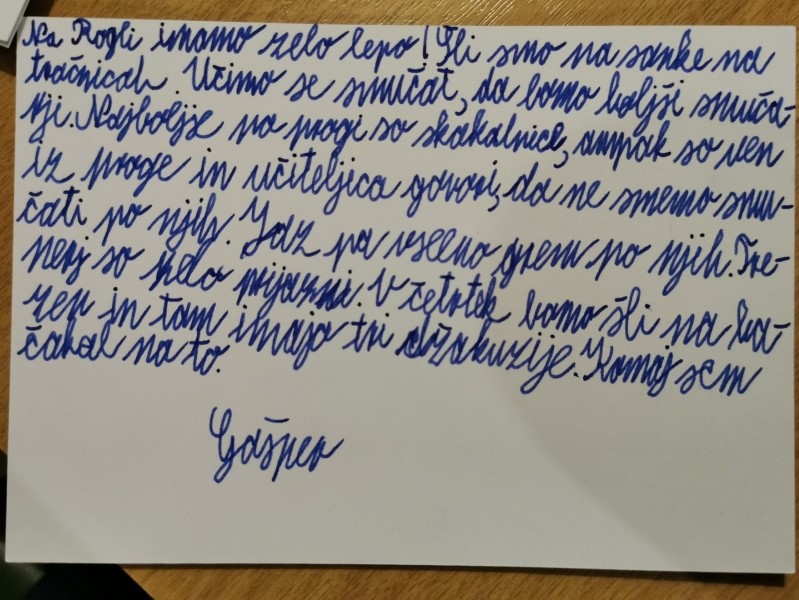 Na Rogli imamo zelo lepo! Šli smo na sanke na
tračnicah. Učimo se smučat, da bomo boljši smuča-
rji. Najboljše na progi so skakalnice, ampak so ven
iz proge in učiteljica govori, da ne smemo smu-
čati po njih. Jaz pa vseeno grem po njih. Tre-
nerj so zelo prijazni. V četrtek bomo šli na ba-
zen in tam imajo tri džakuzije. Komaj sem
čakal na to.
Gašper